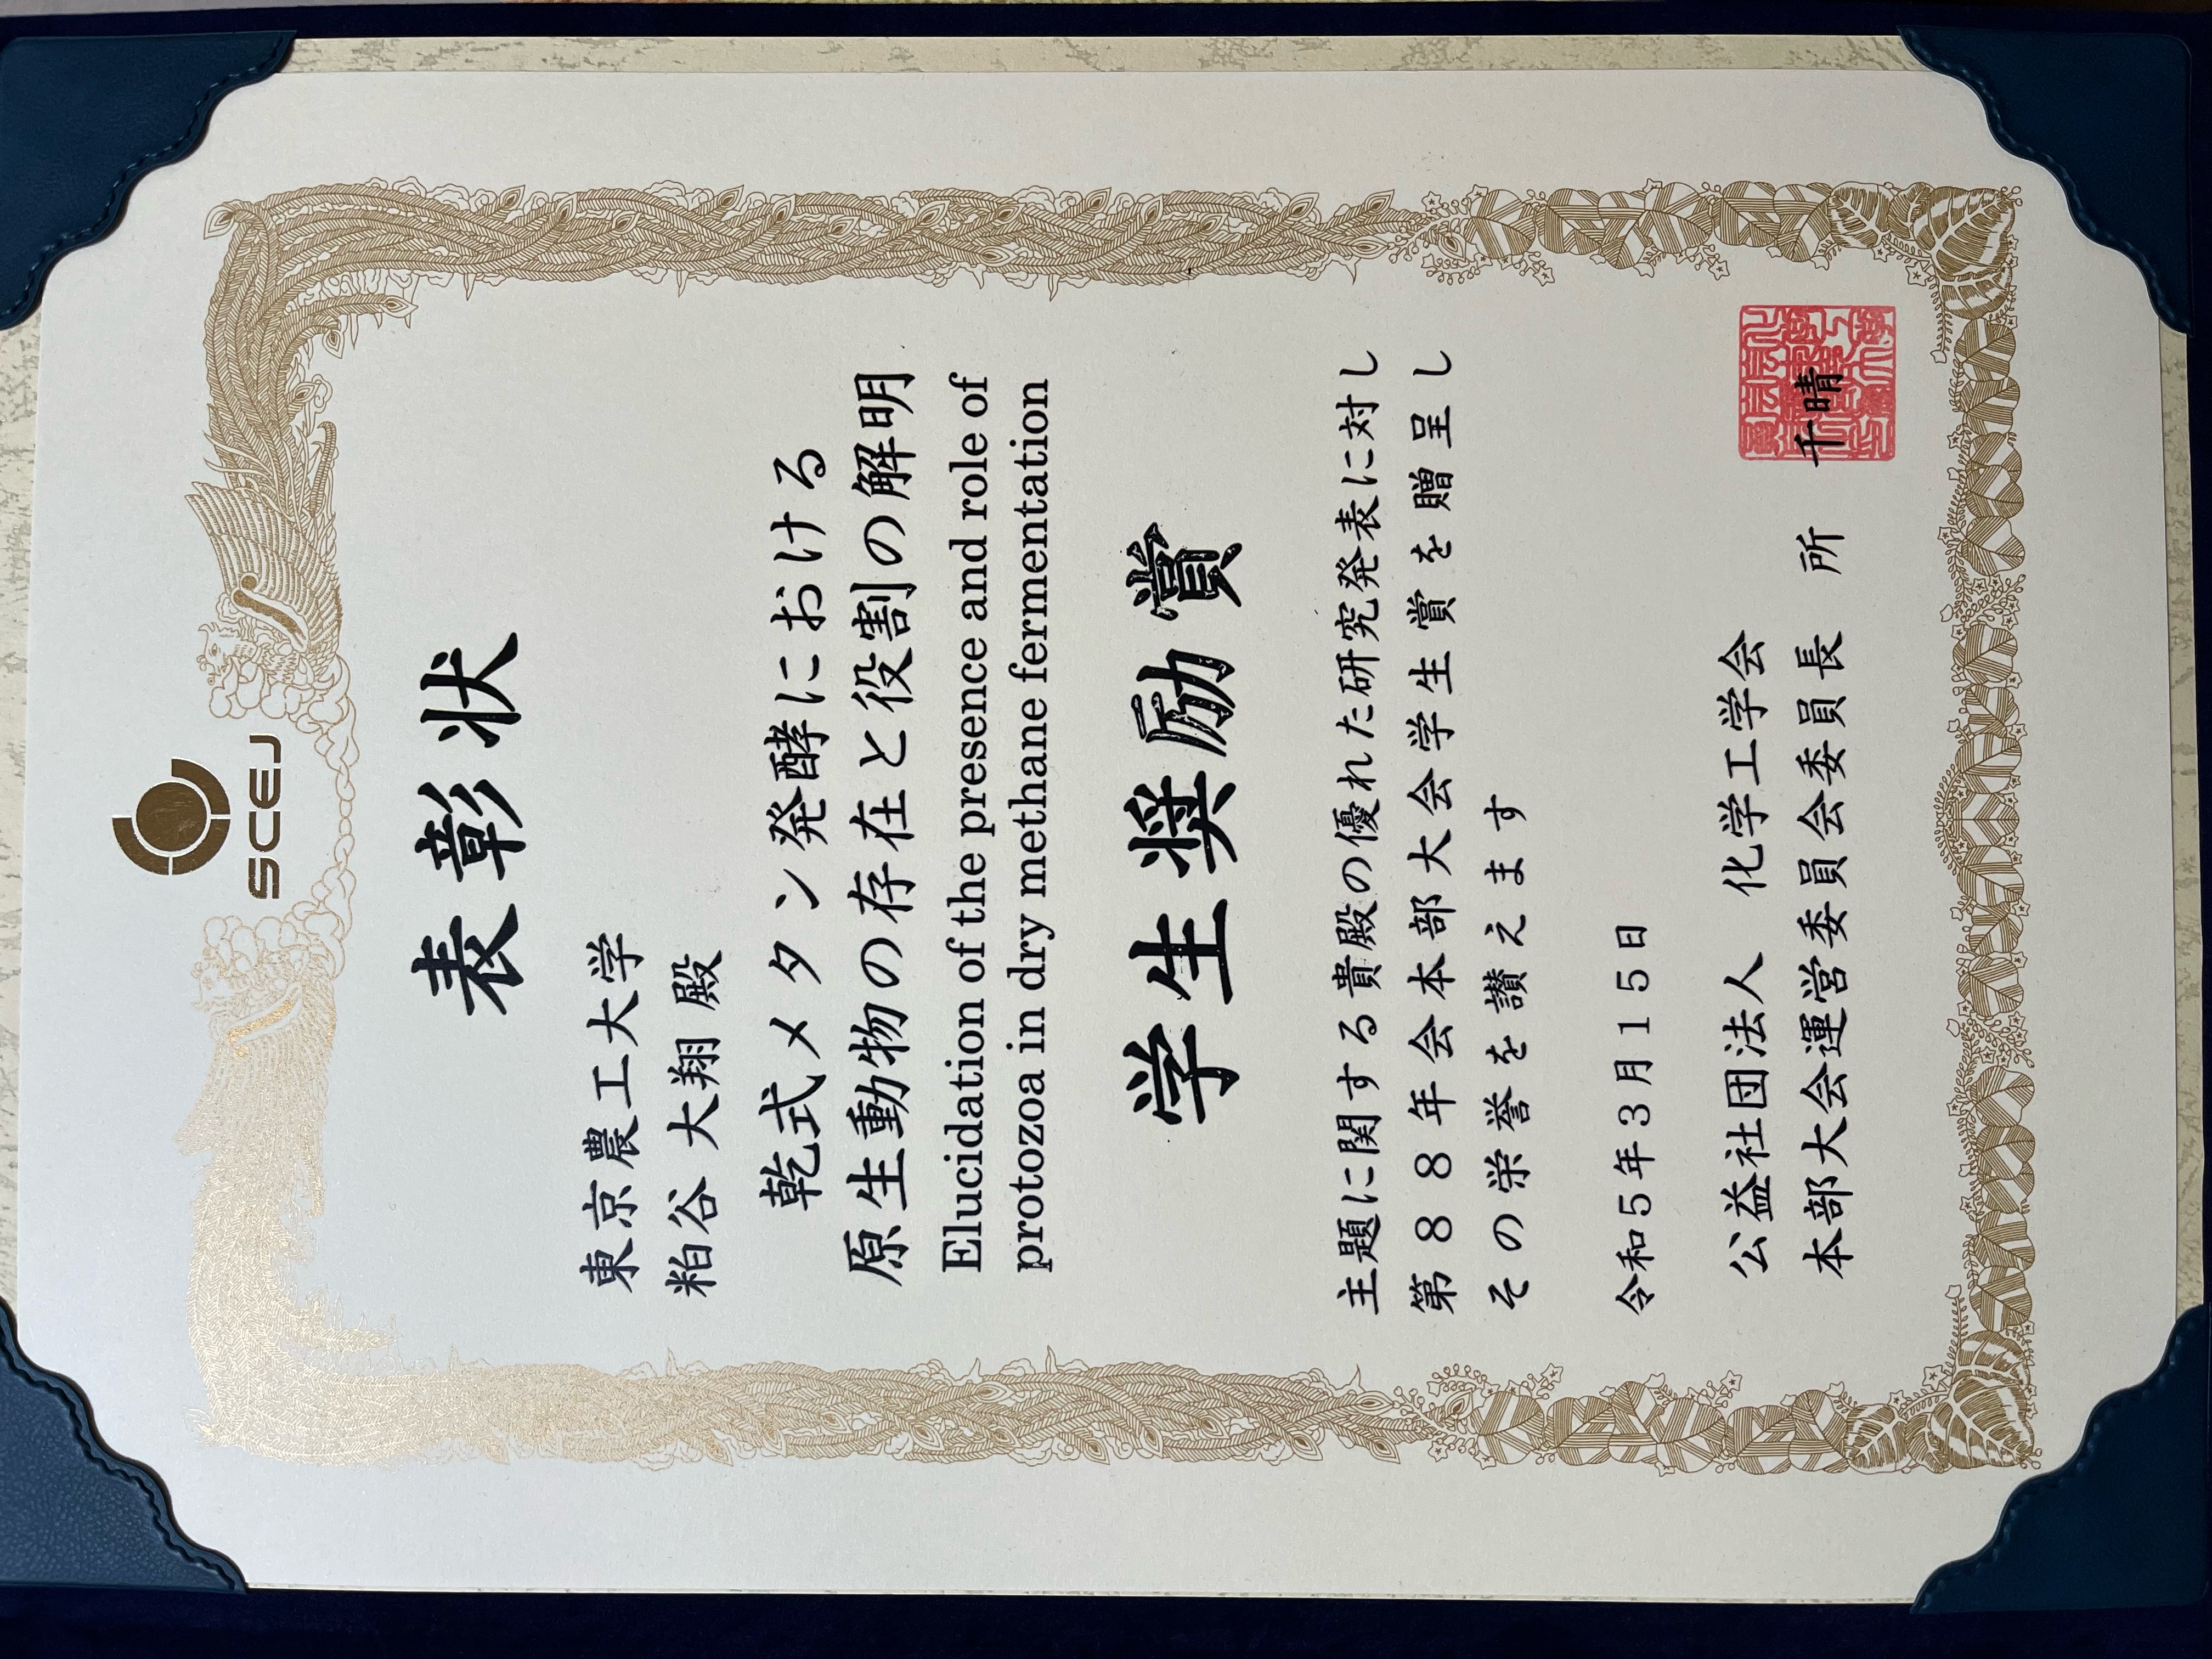 SCEJ
表彰状
東京農工大学
粕谷 大翔 殿
乾式メタン発酵における
原生動物の存在と役割の解明
Elucidation of the presence and role of
protozoa in dry methane fermentation
学生奨励賞
主題に関する貴殿の優れた研究発表に対し
第88年会本部大会学生賞を贈呈し
その栄誉を讃えます
令和5年3月15日
公益社団法人 化学工学会
本部大会運営委員会委員長 所 千晴